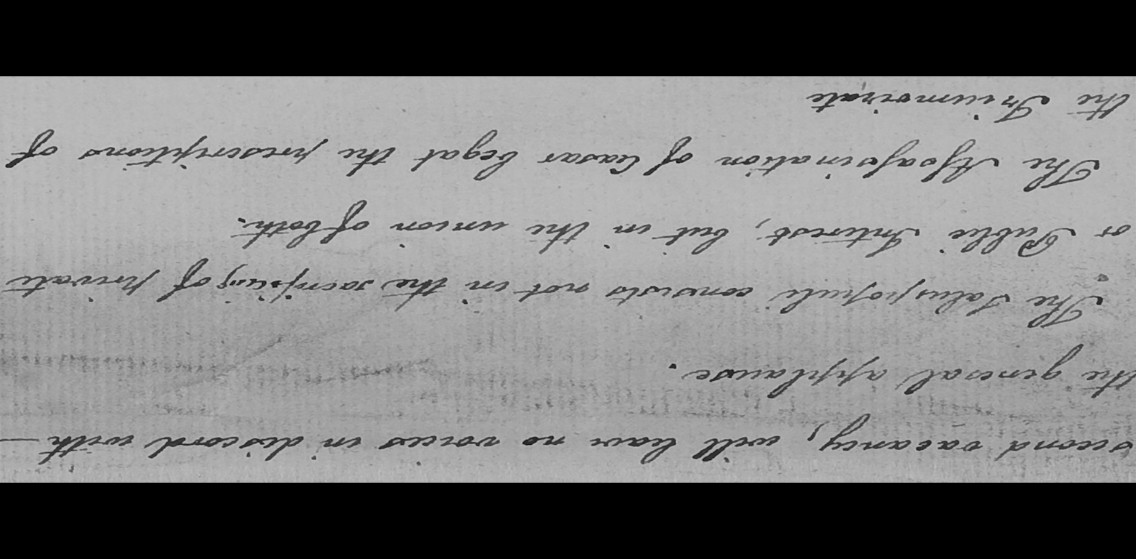 second vacancy, will hear no voices in discord with
the general applause.
The Salus populi consists not in the sacrificing of private
or Public Interest, but in the union of both.
The Assassination of Caesar begat the prescriptions of
the Triumvirate